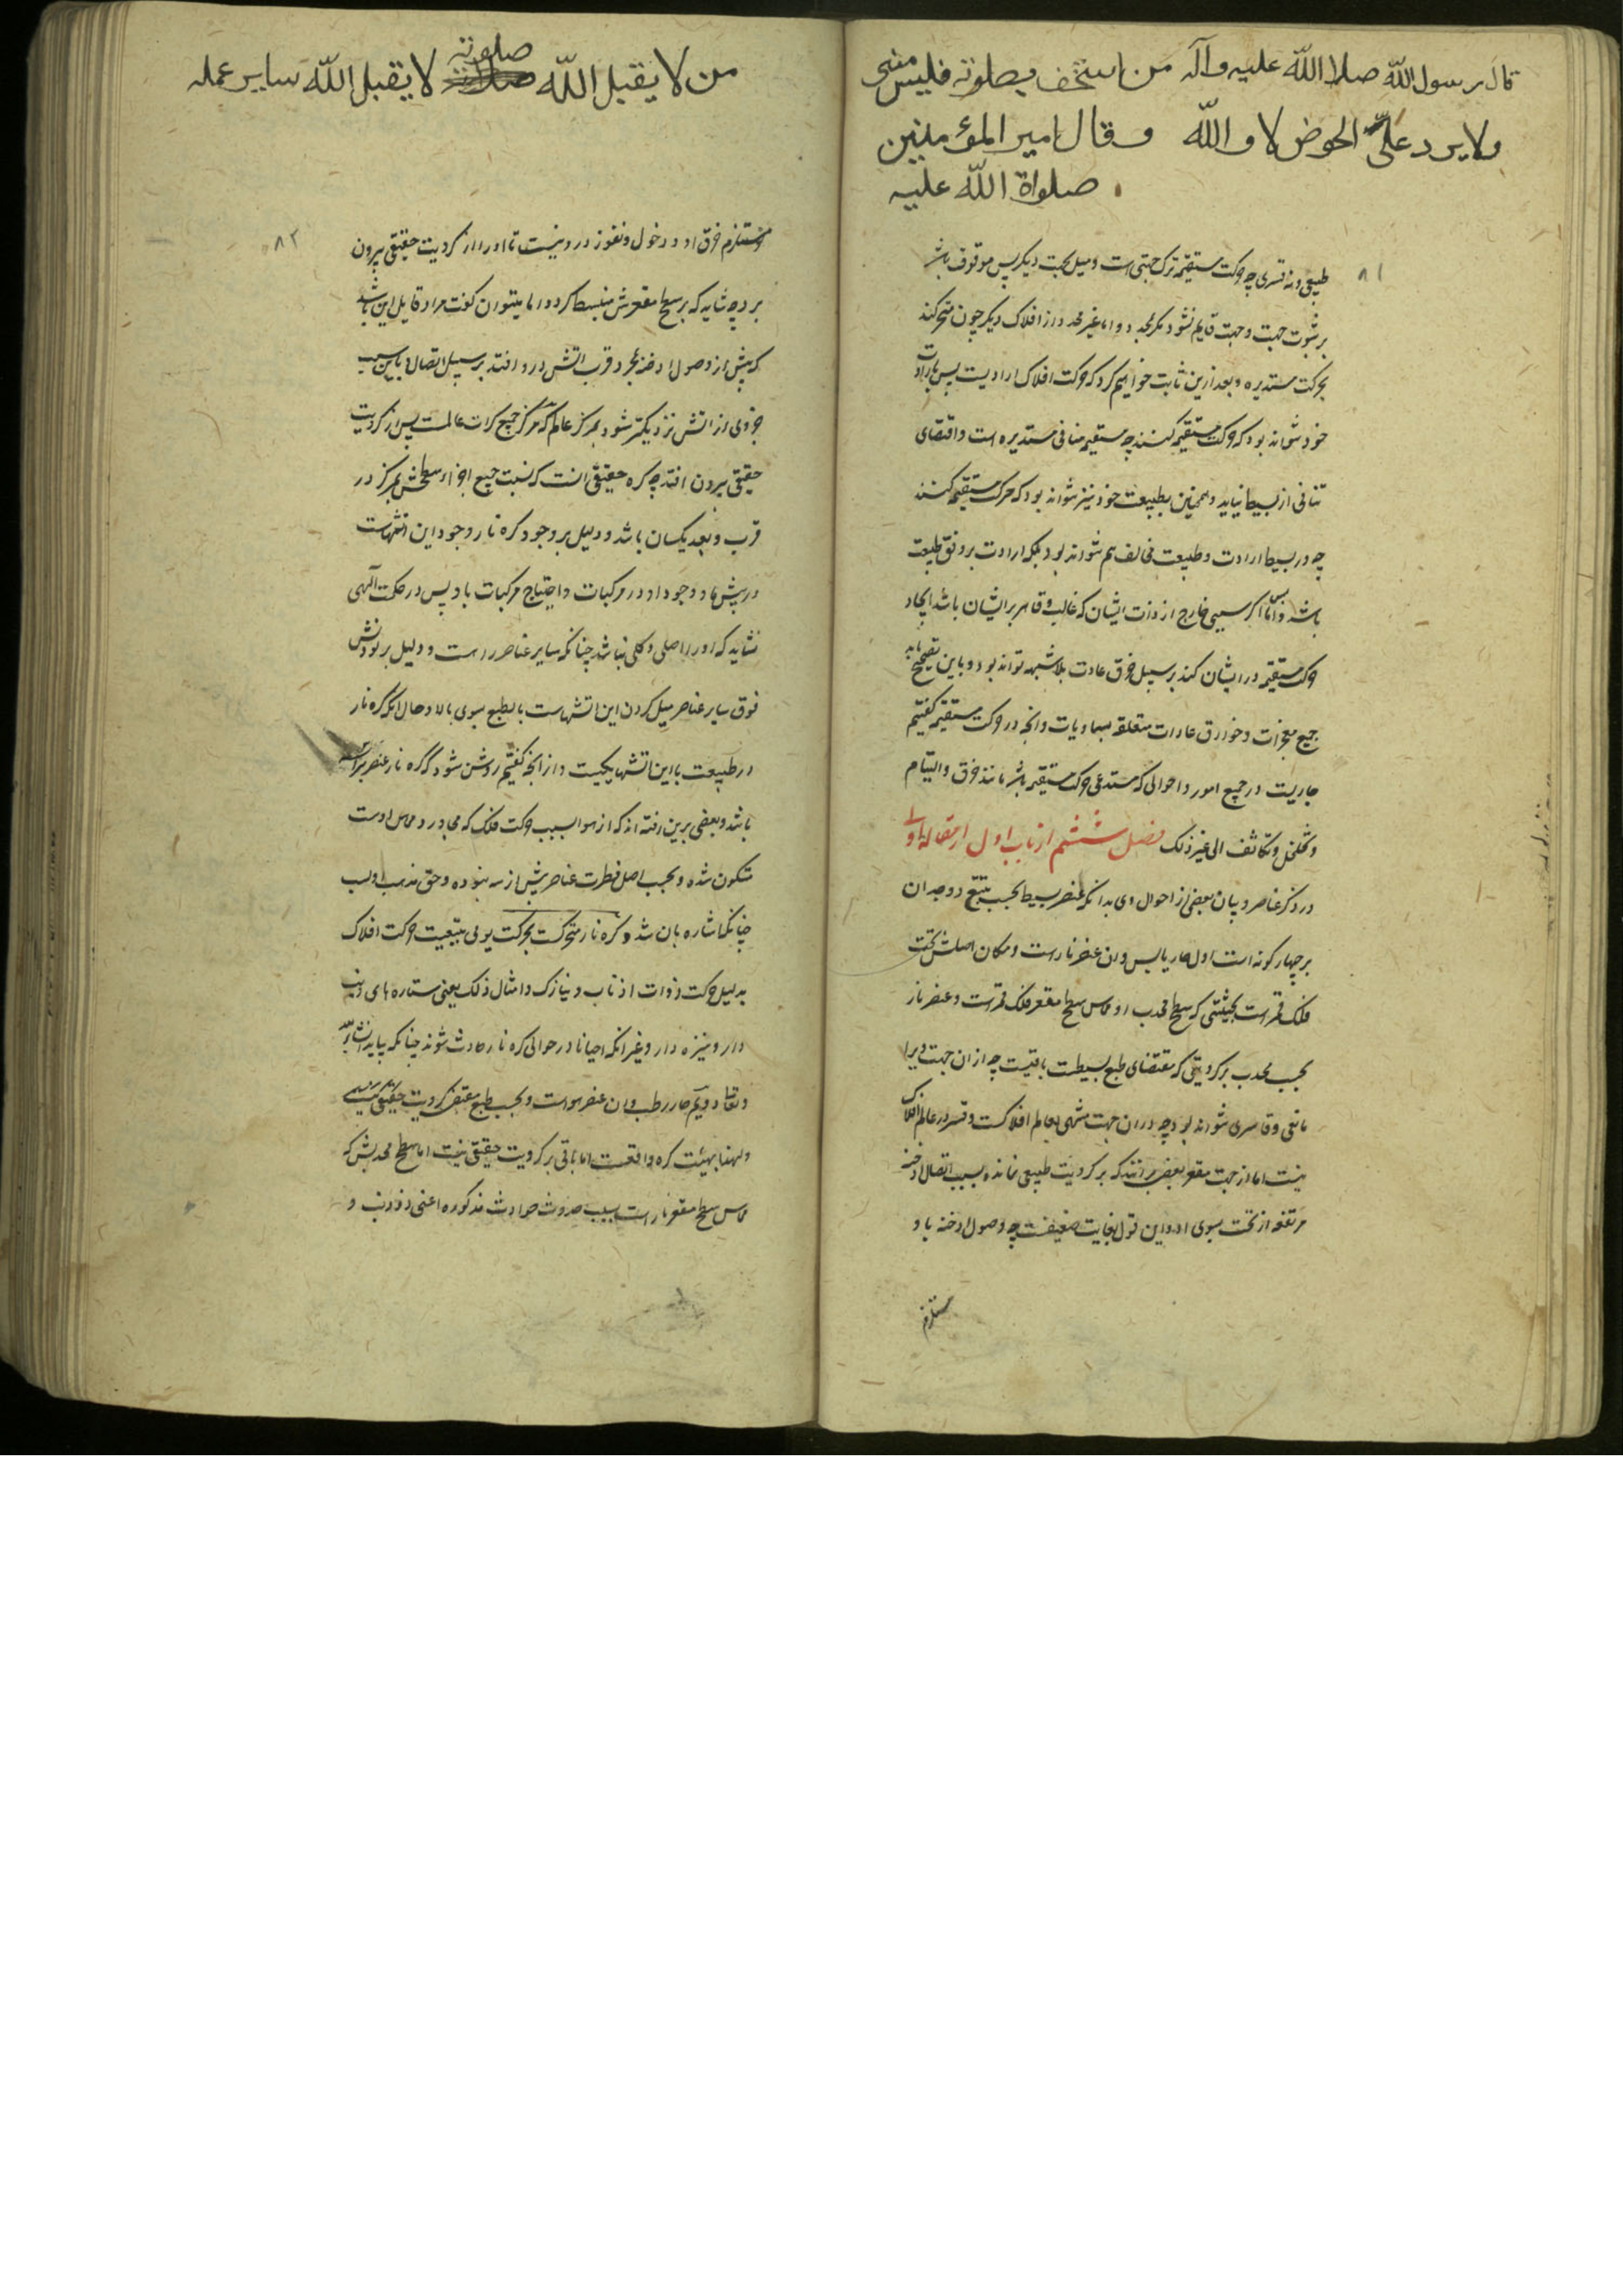 قال رسول الله صلا الله علیه وآله من استخف بصلوته فلیس منی
ولا یرد علیّ الحوض لا والله وقال امیر المؤمنین
صلواة الله علیه
۸۱
طبیعی ونه قسری چه حرکت مستقیمه ترک جهتی است ومیل بجهت دیگر پس موقوف باشد
بر ثبوت جهت وجهت قایم نشود مگر بمحدد واما غیر محدد از افلاک دیگر چون متحرکند
بحرکت مستدیره وبعد ازین ثابت خواهیم کرد که حرکت افلاک ارادیست پس بارادت
خود نتواند بود که حرکت مستقیمه کنند چه مستقیمه منافی مستدیره است واقتضای
تنافی از بسیط نیاید وهمچنین بطبیعت خود نیز نتواند بود که حرکت مستقیمه کنند
چه در بسیط ارادت وطبیعت مخالف هم نتواند بود بلکه ارادت بر وفق طبیعت
باشد پس واما اگر سببی خارج از ذات ایشان که غالب وقاهر بر ایشان باشد ایجاد
حرکت مستقیمه در ایشان کند بر سبیل خرق عادت بلا شبهه تواند بود وباین تصحیح یابد
جمیع معجزات وخوارق عادات متعلقه بسماویات وانچه در حرکت مستقیمه گفتیم
جاریست در جمیع امور واحوالی که مستدعی حرکت مستقیمه باشد مانند خرق والتیام
وتخلخل وتکاثف الی غیر ذلک فصل ششم از باب اول از مقاله اولی
در ذکر عناصر وبیان بعضی از احوال وی بدانکه عنصر بسیط بحسب تتبع ووجدان
بر چهار گونه است اول حار یابس وان عنصر نار است ومکان اصلش تحت
فلک قمر است بحیثیتی که سطح محدب او مماس سطح مقعر فلک قمر است وعنصر نار
بحسب محدب بر کرویتی که مقتضای طبع بسیطست باقیست چه از ان جهت ویرا
مانعی وقاسری نتواند بود چه در ان جهت منتهی بعالم افلاکست وقسر در عالم افلاک
نیست اما از جهت مقعر بعضی برانند که بر کرویت طبیعی نمانده بسبب اتصال ادخنه
مرتفعه از تحت بسوی او واین قول بغایت ضعیفست چه وصول ادخنه باو
مستلزم
من لا یقبل الله صلوته لا یقبل الله سایر عمله
۸۲
مستلزم خرق او ودخول ونفوذ در و نیست تا او را از کرویت حقیقی بیرون
برد چه شاید که بر سطح مقعرش منبسط گردد اما میتوان گفت مراد قایل این باشد
که پیش از وصول ادخنه بمجرد قرب اتش در و افتد بر سبیل اتصال وباین سبب
جزوی از اتش نزدیکتر شود بمرکز عالم که مرکز جمیع کرات عالمست پس از کرویت
حقیقی بیرون افتد چه کره حقیقی انست که نسبت جمیع اجزاء سطحش بمرکز در
قرب وبعد یکسان باشد ودلیل بر وجود کره نار وجود این اتشهاست
در پیش ما ووجود او در مرکبات واحتیاج مرکبات باو پس در حکمت الهی
نشاید که او را اصلی وکلی نباشد چنانکه سایر عناصر راست ودلیل بر بودنش
فوق سایر عناصر میل کردن این اتشهاست بالطبع بسوی بالا وحال انکه کره نار
در طبیعت با این اتشها یکیست واز انچه گفتیم روشن شود که کره نار عنصر براسه
باشد وبعضی برین رفته اند که از هوا بسبب حرکت فلک که مجاور ومماس اوست
متکون شده وبحسب اصل فطرت عناصر بیش از سه نبوده وحق مذهب اولست
چنانکه اشاره بان شد وکره نار متحرکست بحرکت یومی بتبعیت حرکت افلاک
بدلیل حرکت ذوات اذناب ونیازک وامثال ذلک یعنی ستاره های ذنب
دار ونیزه دار وغیر انکه احیانا در حوالی کره نار حادث شوند چنانکه بیاید انشاء الله
وتعالی دویم حار رطب وان عنصر هواست وبحسب طبع مقتضی کرویت حقیقی است
ولهذا بهیئت کره واقعست اما باقی بر کرویت حقیقی نیست اما سطح محدبش که
مماس سطح مقعر نار است بسبب حدوث حوادث مذکوره اعنی ذوذنب و